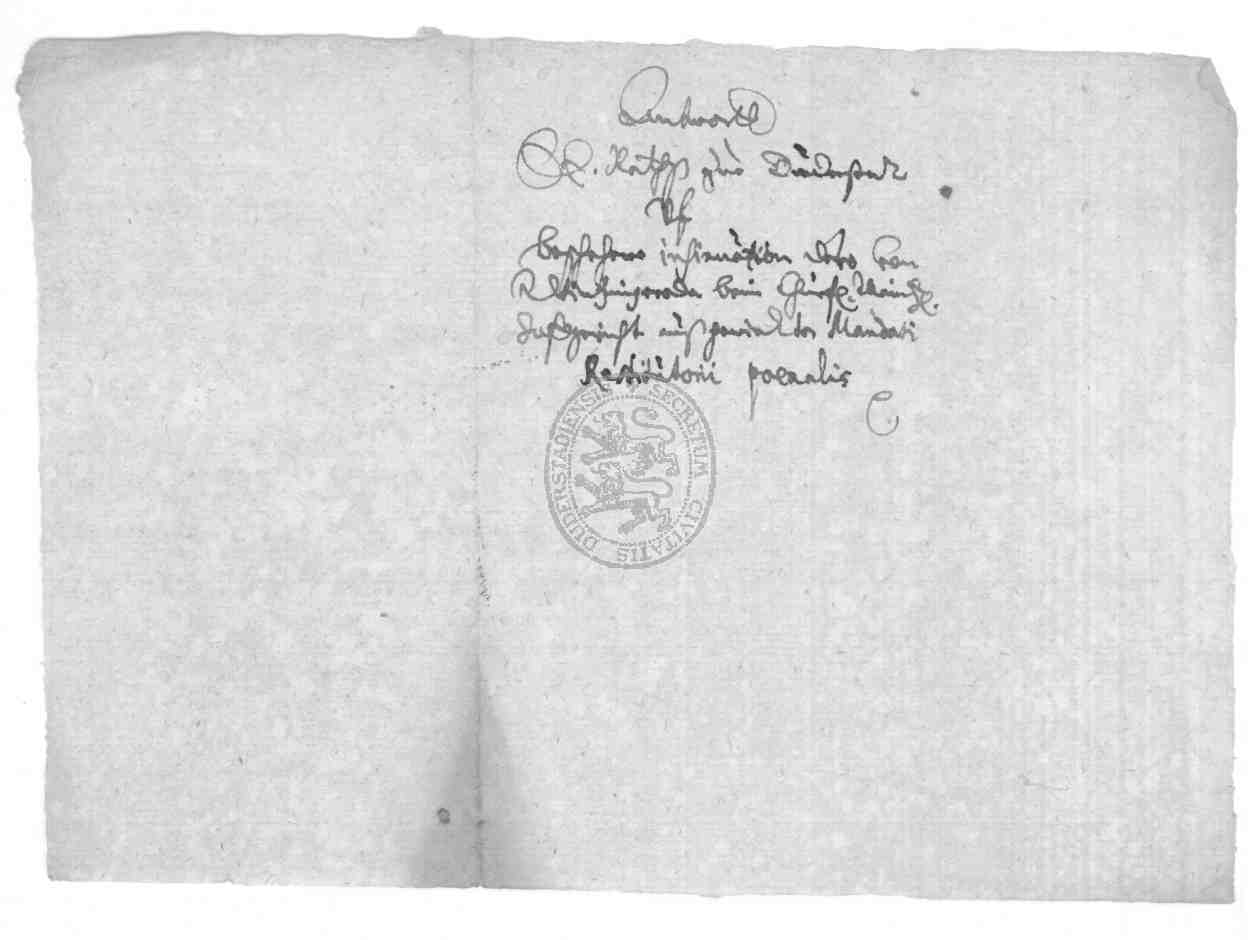 Antwortt
E. E. Raths zue Duderstadt
Uf
beschehene insinuation dero von
Wintzingeroda beim Churf. Maintz.
Hofgericht außgewirckter Mandati
Restitutorii poenalis
SECRETUM CIVITATIS DUDERSTADIENSIS